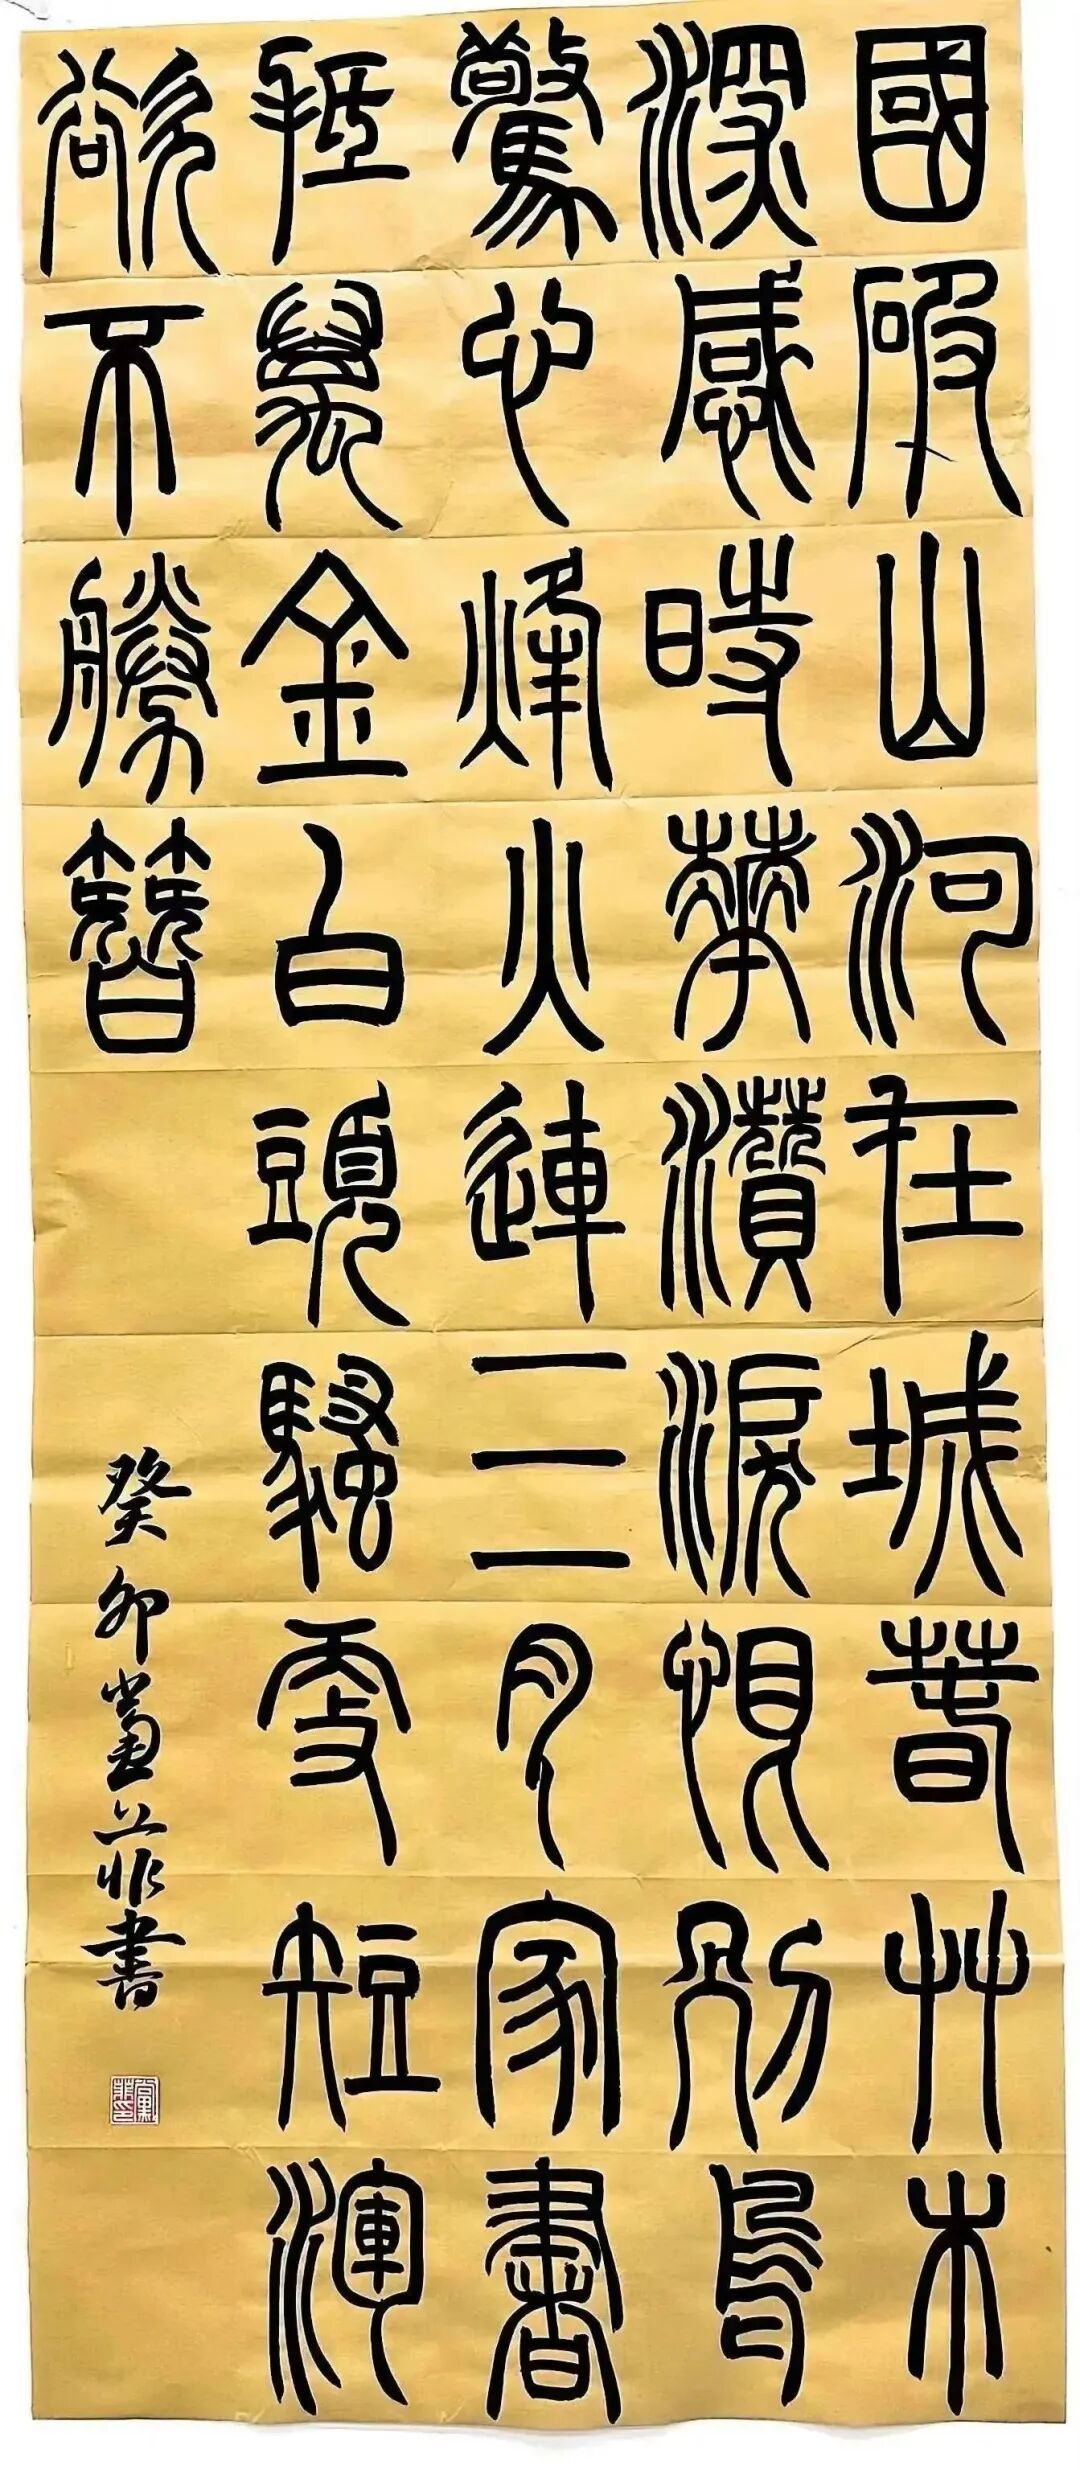 國破山河在城春艸木
深感時華濺淚恨別鳥
驚心烽火連三月家書
抵萬金白頭騷更短渾
欲不勝簪
癸卯黨菲書